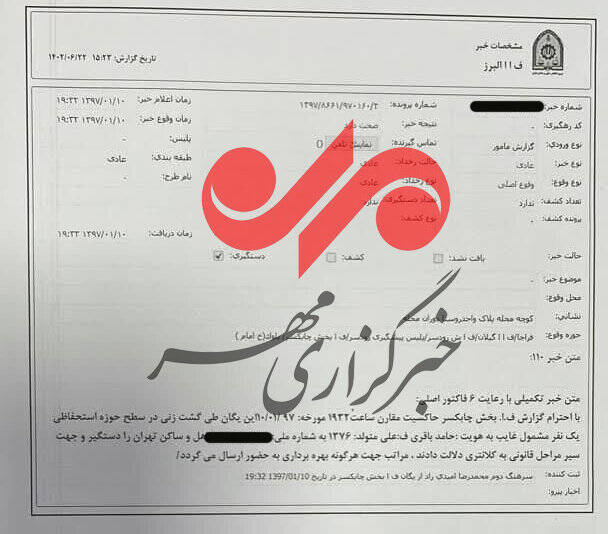 مشخصات خبر
ف ا ا البرز
تاریخ گزارش: ۱۵:۲۳ ۱۴۰۲/۰۶/۲۲
شماره خبر: شماره پرونده: ۱۳۹۷/۸۶۶۱/۹۷۰۱۶۰/۲ زمان اعلام خبر: ۱۳۹۷/۰۱/۱۰ ۱۹:۳۲
کد رهگیری: - نتیجه خبر: صحت دارد زمان وقوع خبر: ۱۳۹۷/۰۱/۱۰ ۱۹:۳۲
نوع ورودی: گزارش مامور تماس گیرنده: نمایش تلفن () پلیس: -
نوع خبر: عادی حالت رخداد: عادی طبقه بندی: عادی
نوع وقوع: وقوع اصلی نوع رخداد: عادی نام طرح: -
تعداد کشف: ندارد تعداد دستگیری: ندارد
پرونده کشف: - نوع کشف:
زمان دریافت: ۱۳۹۷/۰۱/۱۰ ۱۹:۳۳
حالت خبر: یافت نشد: کشف: دستگیری:
موضوع خبر: -
محل وقوع:
نشانی: کوچه محله پلاک واحدروستا دوران محله
حوزه وقوع: فراجا/ف ا ا گیلان/ف ا ش رودسر/پلیس پیشگیری رودسر/ف ا بخش چابکسر/ بلوک(خ امام )
متن خبر ۱۱۰:
خبرگزاری مهر
متن خبر تکمیلی با رعایت ۶ فاکتور اصلی:
با احترام گزارش ف.ا. بخش چابکسر حاکیست مقارن ساعت۱۹۳۲ مورخه: ۹۷ /۱۰/۰۱این یگان طی گشت زنی در سطح حوزه استحفاظی
یک نفر مشمول غایب به هویت :حامد باقری ف:علی متولد: ۱۳۷۶ به شماره ملی: هل و ساکن تهران را دستگیر و جهت
سیر مراحل قانونی به کلانتری دلالت دادند ، مراتب جهت هرگونه بهره برداری به حضور ارسال می گردد/
ثبت کننده: سرهنگ دوم محمدرضا امیدی راد از یگان ف ا بخش چابکسر در تاریخ 1397/01/10 19:32
اخبار پیرو: